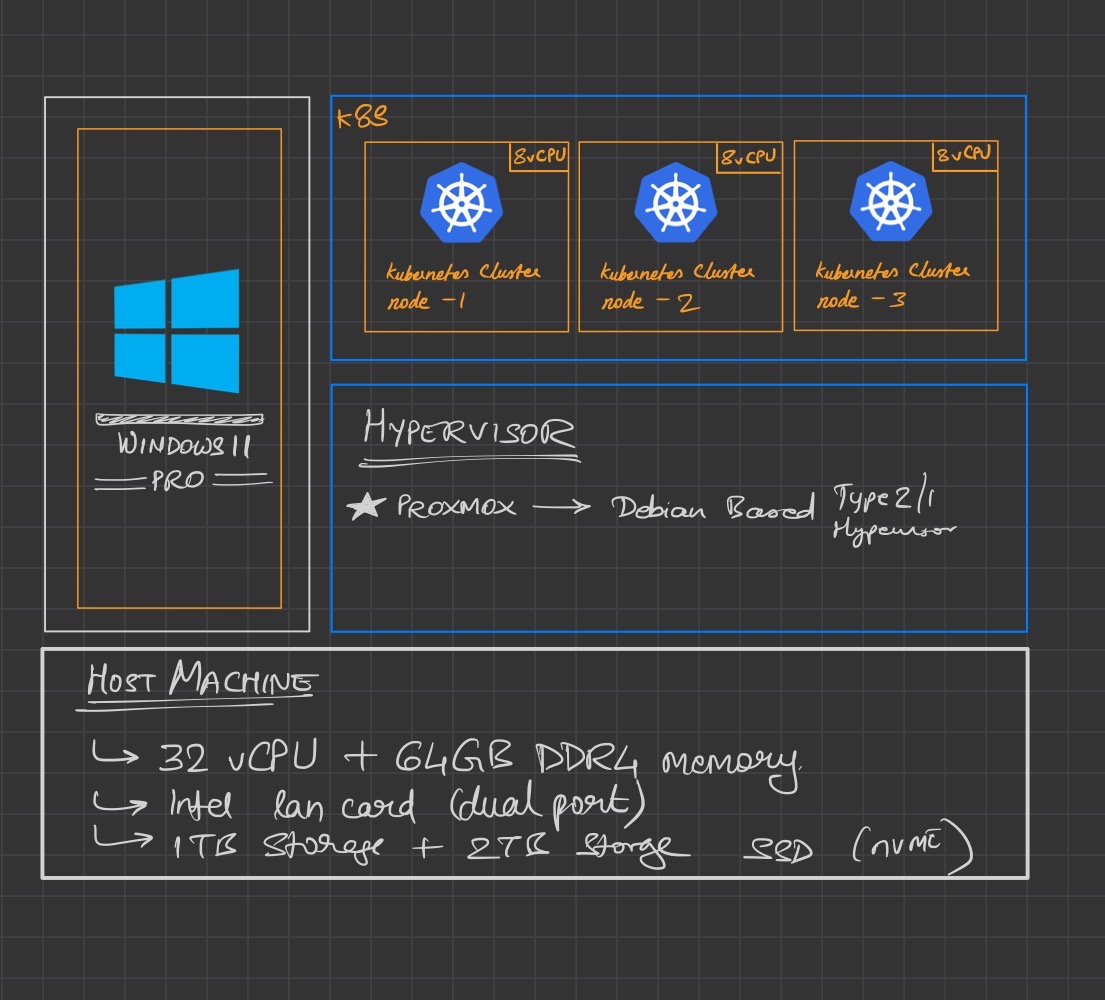 K8S
8vCPU
8vCPU
8vCPU
kubernetes Cluster
node -1
kubernetes Cluster
node -2
kubernetes Cluster
node -3
WINDOWS 11
PRO
HYPERVISOR
★ PROXMOX → Debian Based Type 2/1
Hypervisor
HOST MACHINE
↳ 32 vCPU + 64GB DDR4 memory.
↳ Intel lan card (dual port)
↳ 1TB Storage + 2TB Storge SSD (nVME)